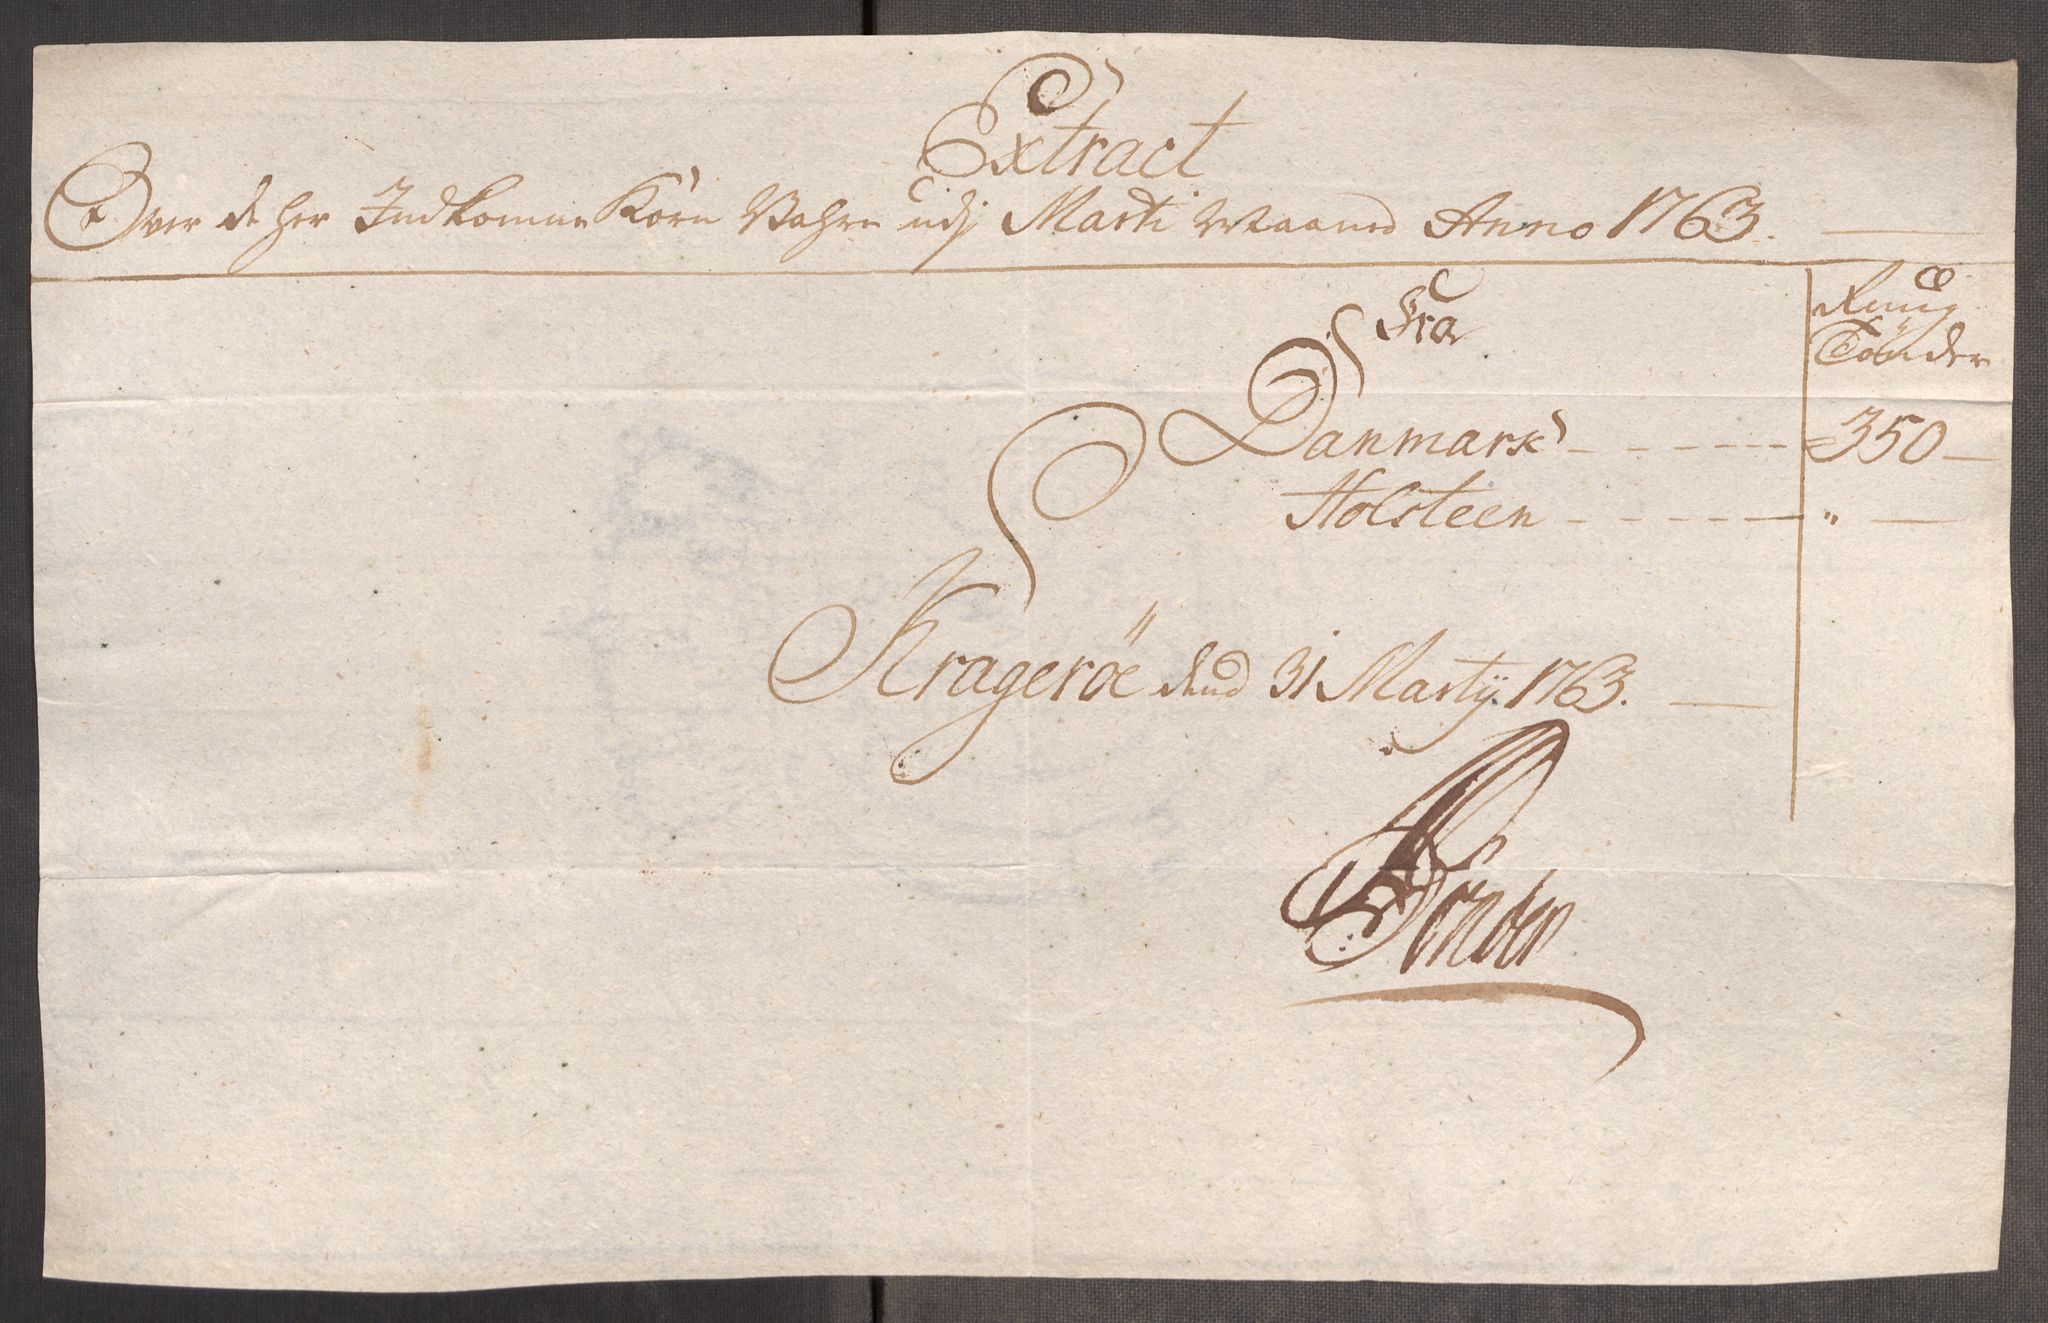 Extract
Over de her Indkomne Korn Vahre udj Marti Maaned Anno 1763.
Fra
Rug
Tönder
Danmark - - - - - 350 -
Holsteen - - - - - " -
Krageröe dend 31 Martij 1763.